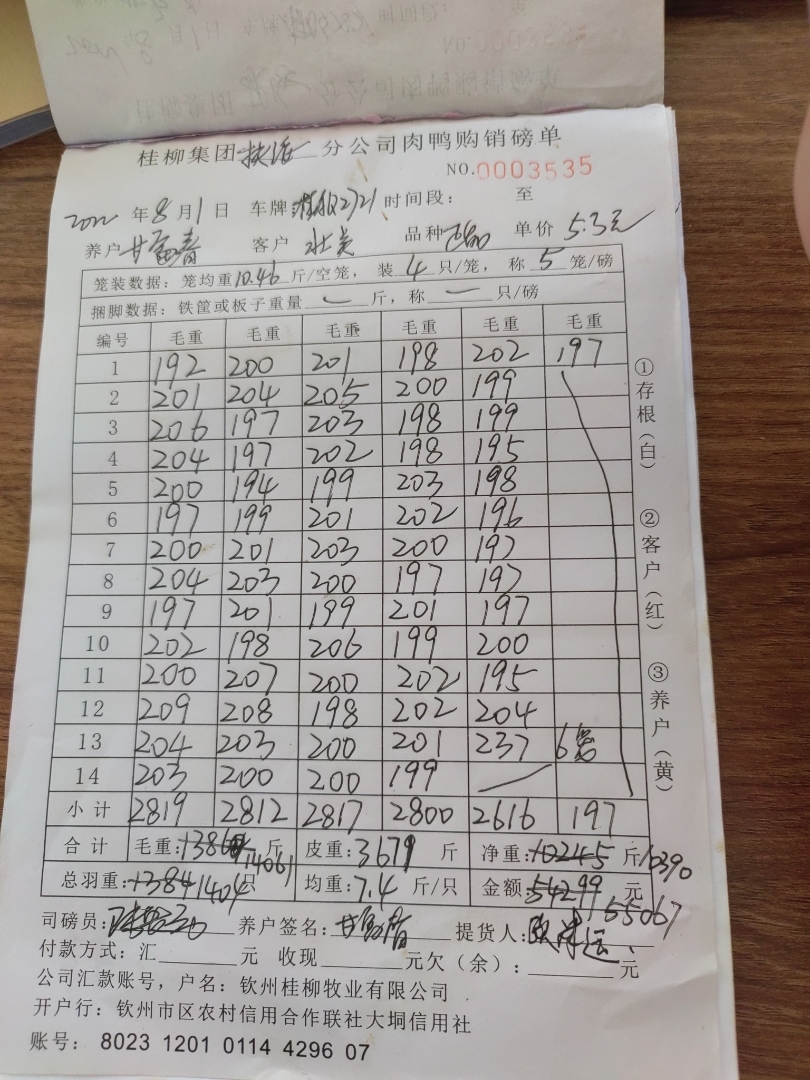 桂柳集团 分公司肉鸭购销磅单
NO.0003535
2022 年 8 月 1 日 车牌 2721 时间段： 至
养户 甘富青 客户 品种 单价 5.3元
笼装数据：笼均重 10.46 斤/空笼，装 4 只/笼，称 5 笼/磅
捆脚数据：铁筐或板子重量 — 斤，称 — 只/磅
编号 毛重 毛重 毛重 毛重 毛重 毛重
1 192 200 201 198 202 197
2 201 204 205 200 199
3 206 197 203 198 199
4 204 197 202 198 195
5 200 194 199 203 198
6 197 199 201 202 196
7 200 201 203 200 197
8 204 203 200 197 197
9 197 201 199 201 197
10 202 198 206 199 200
11 200 207 200 202 195
12 209 208 198 202 204
13 204 203 200 201 237 6笼
14 203 200 200 199
小计 2819 2812 2817 2800 2616 197
合计 毛重： 14061 斤 皮重：3671 斤 净重：10245 斤 10390
总羽重：13841404 只 均重：7.4 斤/只 金额：54299 元 55067
司磅员： 养户签名：甘富青 提货人：
付款方式：汇 元 收现 元欠（余）： 元
公司汇款账号，户名：钦州桂柳牧业有限公司
开户行：钦州市区农村信用合作联社大垌信用社
账号： 8023 1201 0114 4296 07
①存根（白）
②客户（红）
③养户（黄）